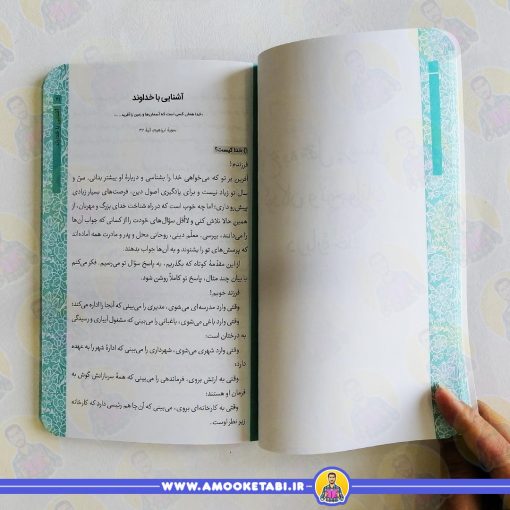 آشنایی با خداوند
خدا همان کسی است که آسمان‌ها و زمین را آفرید ...
سوره ابراهیم، آیهٔ ۳۲
خدا کیست؟
فرزندم!
آفرین بر تو که می‌خواهی خدا را بشناسی و دربارهٔ او بیشتر بدانی. سنّ و
سال تو زیاد نیست و برای یادگیری اصول دین، فرصت‌های بسیار زیادی
پیش‌رو داری؛ اما چه خوب است که در راه شناخت خدای بزرگ و مهربان، از
همین حالا تلاش کنی و لااقل سؤال‌های خودت را از کسانی که جواب آن‌ها
را می‌دانند، بپرسی. معلّم دینی، روحانی محل و پدر و مادرت همه آماده‌اند
که پرسش‌های تو را بشنوند و به آن‌ها جواب بدهند.
از این مقدّمهٔ کوتاه که بگذریم، به پاسخ سؤال تو می‌رسیم. فکر می‌کنم
با بیان چند مثال، پاسخ تو کاملاً روشن شود.
فرزند خوبم!
وقتی وارد مدرسه‌ای می‌شوی، مدیری را می‌بینی که آنجا را اداره می‌کند؛
وقتی وارد باغی می‌شوی، باغبانی را می‌بینی که مشغول آبیاری و رسیدگی
به درختان است؛
وقتی وارد شهری می‌شوی، شهرداری را می‌بینی که ادارهٔ شهر را به عهده
دارد؛
وقتی به ارتش بروی، فرماندهی را می‌بینی که همهٔ سربازانش گوش به
فرمان او هستند؛
وقتی به کارخانه‌ای بروی، می‌بینی که آن‌جا هم رئیسی دارد که کارخانه
زیر نظر اوست.
WWW.AMOOKETABI.IR